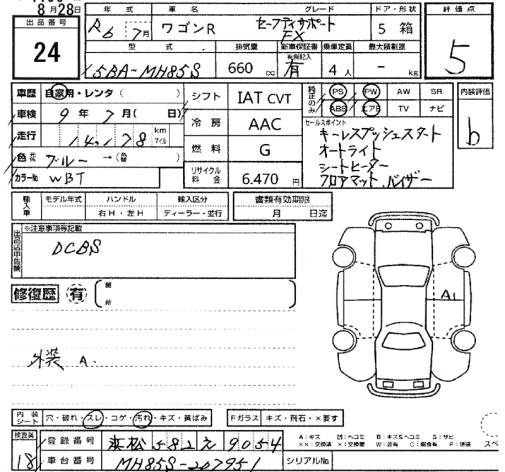 8月28日
出品番号
24
年式
車名
グレード
ドア・形状
評価点
R6年7月
ワゴンR
セーフティサポート
FX
5 箱
5
型式
排気量
新車保証書
乗車定員
最大積載量
5BA-MH85S
660 cc
有
4人
- kg
車歴
自家用・レンタ
シフト
IAT CVT
PS
PW
AW
SR
内装評価
車検
9年7月(日)
ABS
エアB
TV
ナビ
b
走行
1,478 km
マイル
冷房
AAC
セールスポイント
キーレスプッシュスタート
オートライト
シートヒーター
フロアマット、バイザー
色
ブルー→
燃料
G
カラーNo
WBT
リサイクル
料金
6.470円
輸入車
モデル年式
ハンドル
輸入区分
右H・左H
ディーラー・並行
書類有効期限
月 日迄
※注意事項等記載
DCBS
修復歴
有
箇
所
A1
外装 A.
内装
シート
穴・破れ・スレ・コゲ・汚れ・キズ・黄ばみ
Fガラス
キズ・飛石・×要す
検査員
18
登録番号
浜松 582 え 9054
車台番号
MH85S-207951
シリアルNo